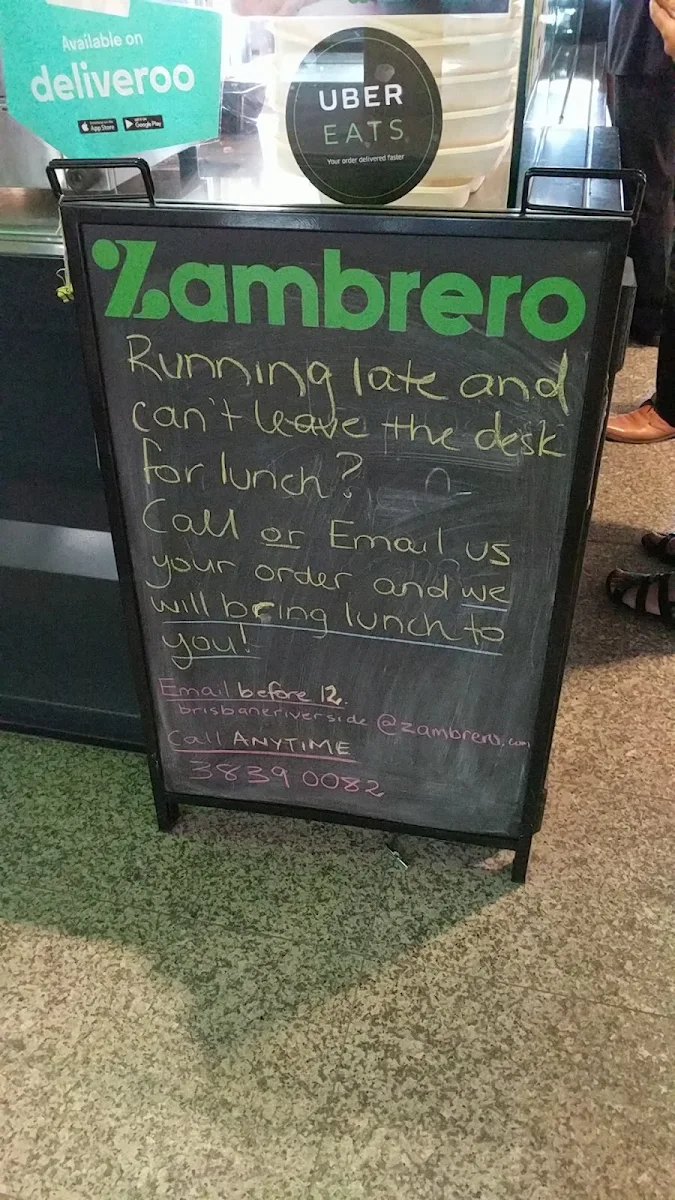 Available on
deliveroo
App Store
Google Play
UBER
EATS
Your order delivered faster
Zambrero
Running late and
can't leave the desk
for lunch?
Call or Email us
your order and we
will bring lunch to
you!
Email before 12.
brisbaneriverside@zambrero.com
Call ANYTIME
3839 0082